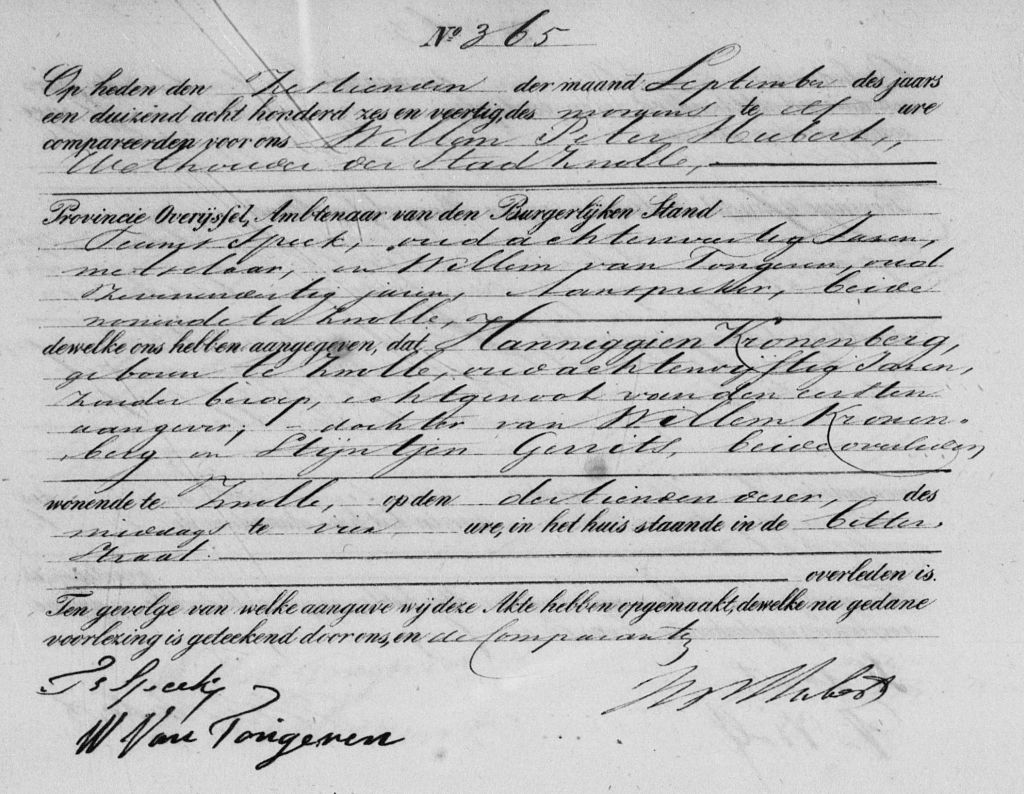 No. 365
Op heden den Zestienden der maand September des jaars
een duizend acht honderd zes en veertig, des morgens te elf ure
compareerden voor ons Willem Peter Hubert,
Wethouder der Stad Zwolle,
Provincie Overijssel, Ambtenaar van den Burgerlijken Stand
Teunis Speek, oud achtenveertig Jaren,
metselaar, en Willem van Tongeren, oud
Zevenendertig jaren, Aanspreker, beide
wonende te Zwolle,
dewelke ons hebben aangegeven, dat Hanniggien Kronenberg,
geboren te Zwolle, oud achtenvijftig Jaren,
zonder beroep, echtgenoot van den eersten
aangever; dochter van Willem Kronen-
berg en Stijntjen Gerrits, beide overleden,
wonende te Zwolle, op den dertienden dezer, des
middags te vier ure, in het huis staande in de Bitter
Straat.
overleden is.
Ten gevolge van welke aangave wij deze Akte hebben opgemaakt, dewelke na gedane
voorlezing is geteekend door ons, en de Comparanten
Ts Speek
W Van Tongeren
WP Hubert